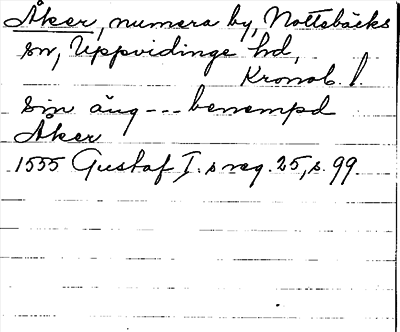 Åker, numera by, Nottebäcks
sn, Uppvidinge hd,
Kronob. l
sin äng --- benempd
Åker
1555 Gustaf I. s reg. 25, s. 99.